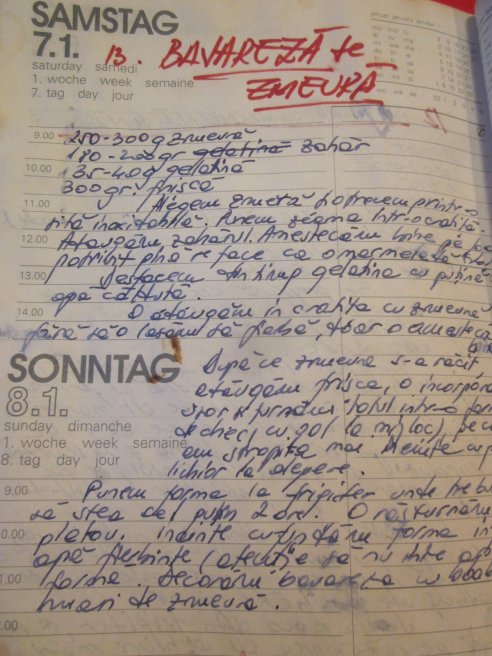 SAMSTAG
7.1.
13. BAVAREZĂ de
ZMEURĂ
saturday samedi
1. woche week semaine
7. tag day jour
januar january janvier
9.00 250-300g zmeură
180-200gr gelatină zahăr
10.00 35-40g gelatină
300gr. frișcă
11.00 Alegem zmeura o trecem printr-o
sită inoxidabilă. Punem zeama într-o cratiță.
12.00 Adăugăm zahărul. Amestecăm bine pe foc
potrivit până se face ca o marmeladă
13.00 Desfacem în timp gelatina cu puțină
apă călduță.
14.00 O adăugăm în cratița cu zmeură
fără să o lăsăm să fiarbă, doar o amesteca
bine
SONNTAG
8.1.
După ce zmeura s-a răcit
adăugăm frișca, o încorporă
ușor și turnăm totul într-o for
de chec, cu
am stropit-o mai înainte cu
lichior la alegere.
sunday dimanche
1. woche week semaine
8. tag day jour
9.00 Punem forma la frigider unde trebu
să stea cel puțin 2 ore. O răsturnăm
10.00 platou. înainte cufundăm forma în
apă fierbinte (atenție să nu intre ap
forma. Decorăm bavareza cu boab
mari de zmeură.